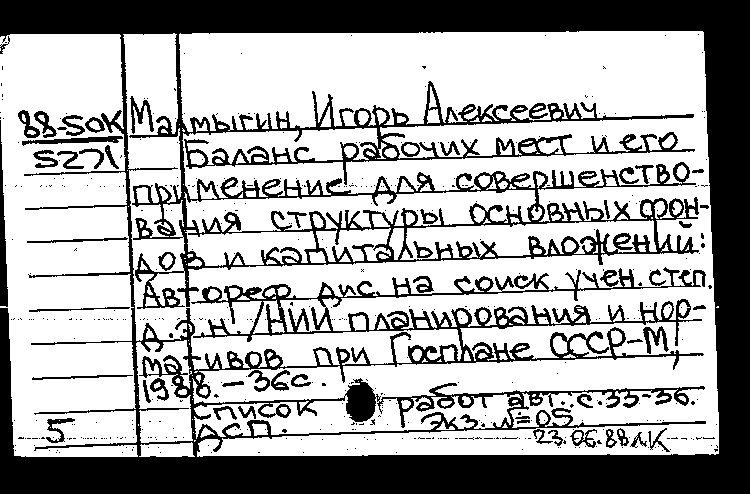 88-5ОК Малмыгин, Игорь Алексеевич.
5271 Баланс рабочих мест и его
применение для совершенство-
вания структуры основных фон-
дов и капитальных вложений:
Автореф. дис. на соиск. учен. степ.
д.э.н. /НИИ планирования и нор-
мативов при Госплане СССР.-М.,
1988.-36с.
Список работ авт.: с.33-36.
5 ДСП. Экз. №=05.
23.06.88 ЛК